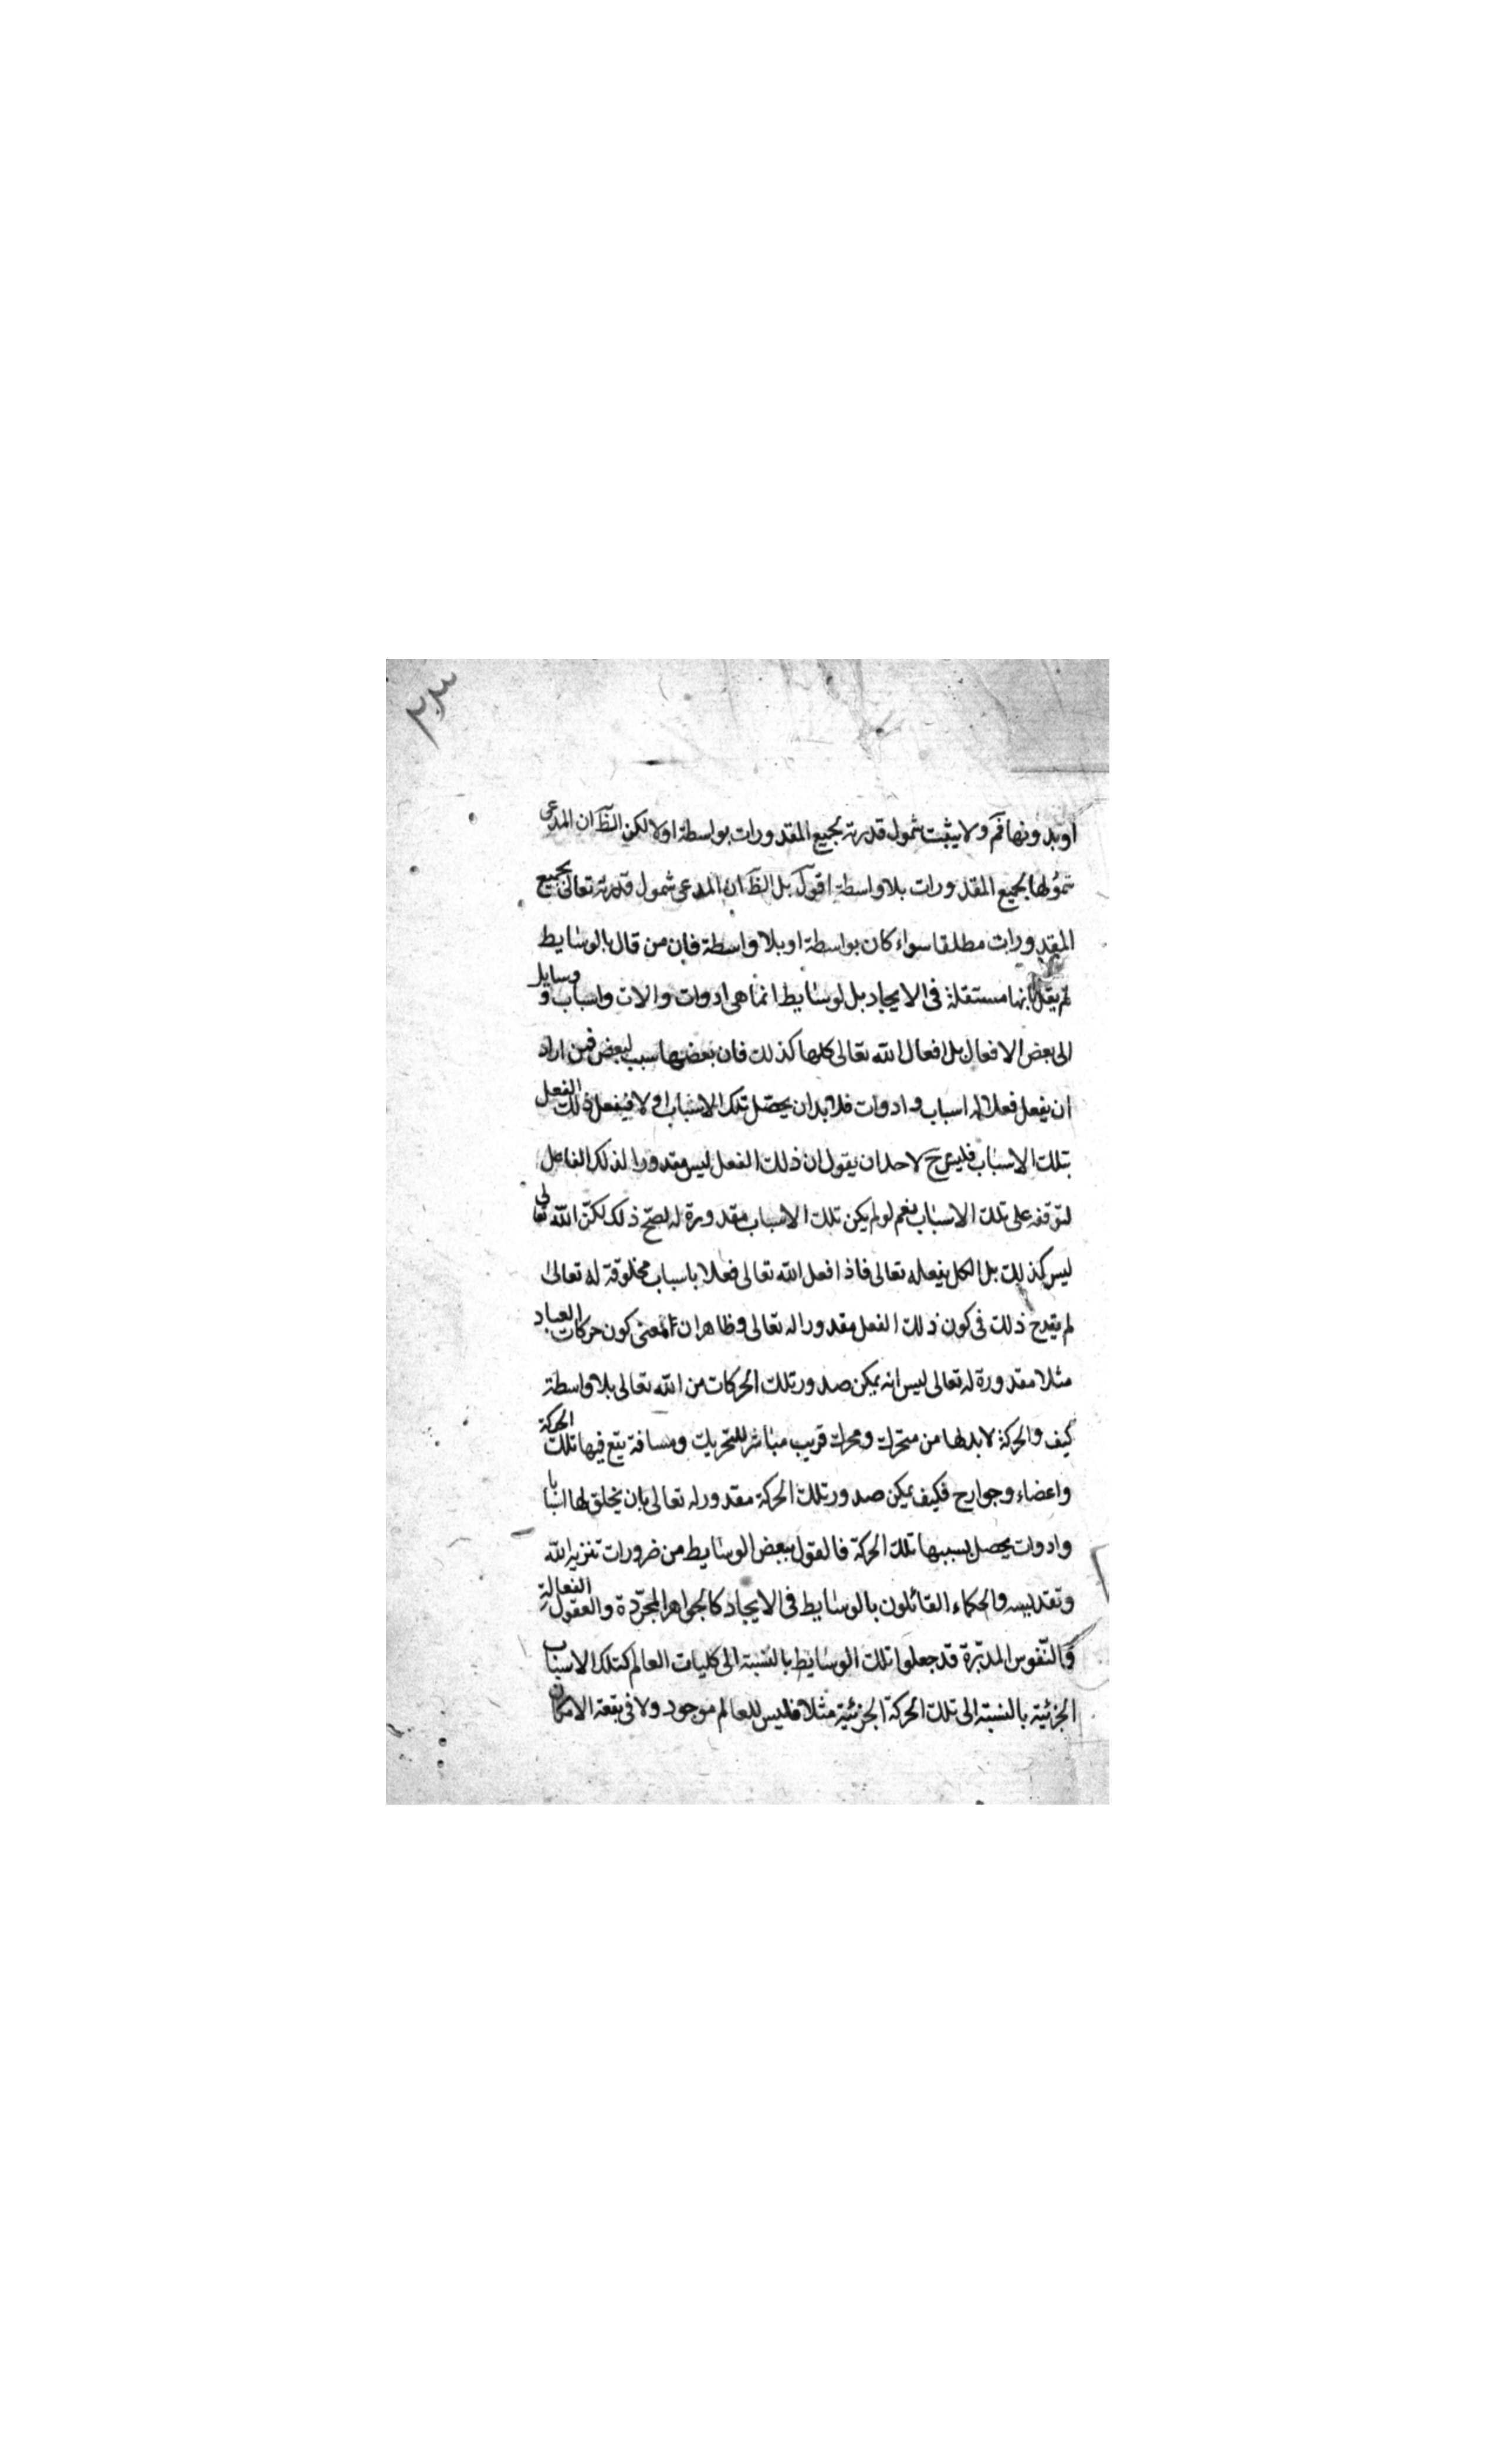 ٢٣
او بدونها فم ولا يثبت شمول قدرته لجميع المقدورات بواسطة اولا لكن الظ ان المدعى
شمولها لجميع المقدورات بلا واسطة اقول بل الظ ان المدعى شمول قدرته تعالى لجميع
المقدورات مطلقا سواء كان بواسطة او بلا واسطة فان من قال بالوسايط
لم يقل بانها مستقلة فى الايجاد بل لوسايط انما هى ادوات والات واسباب و وسايل
الى بعض الافعال بل افعال الله تعالى كلها كذلك فان بعضها سبب لبعض فمن اراد
ان يفعل فعلا له اسباب و ادوات فلا بد ان يحصل تلك الاسباب اولا فيفعل ذلك الفعل
بتلك الاسباب فليس ح لاحد ان يقول ان ذلك الفعل ليس مقدورا لذلك الفاعل
لتوقفه على تلك الاسباب نعم لو لم يكن تلك الاسباب مقدورة له لصح ذلك لكن الله تعالى
ليس كذلك بل الكل بفعله تعالى فاذا فعل الله تعالى فعلا باسباب مخلوقة له تعالى
لم يقدح ذلك فى كون ذلك الفعل مقدورا له تعالى وظاهر ان المعنى كون حركات العباد
مثلا مقدورة له تعالى ليس انه يمكن صدور تلك الحركات من الله تعالى بلا واسطة
كيف والحركة لا بد لها من متحرك ومحرك قريب مباشر للتحريك ومسافة يقع فيها تلك الحركة
واعضاء وجوارح فكيف يمكن صدور تلك الحركة مقدور له تعالى بان يخلق لها اسبابا
وادوات يحصل بسببها تلك الحركة فالقول ببعض الوسايط من ضرورات تنزيه الله
وتقديسه والحكماء القائلون بالوسايط فى الايجاد كالجواهر المجردة والعقول الفعالة
والنفوس المدبرة قد جعلوا تلك الوسايط بالنسبة الى كليات العالم كتلك الاسباب
الجزئية بالنسبة الى تلك الحركة الجزئية مثلا فليس للعالم موجود ولا فى بقعة الامكان